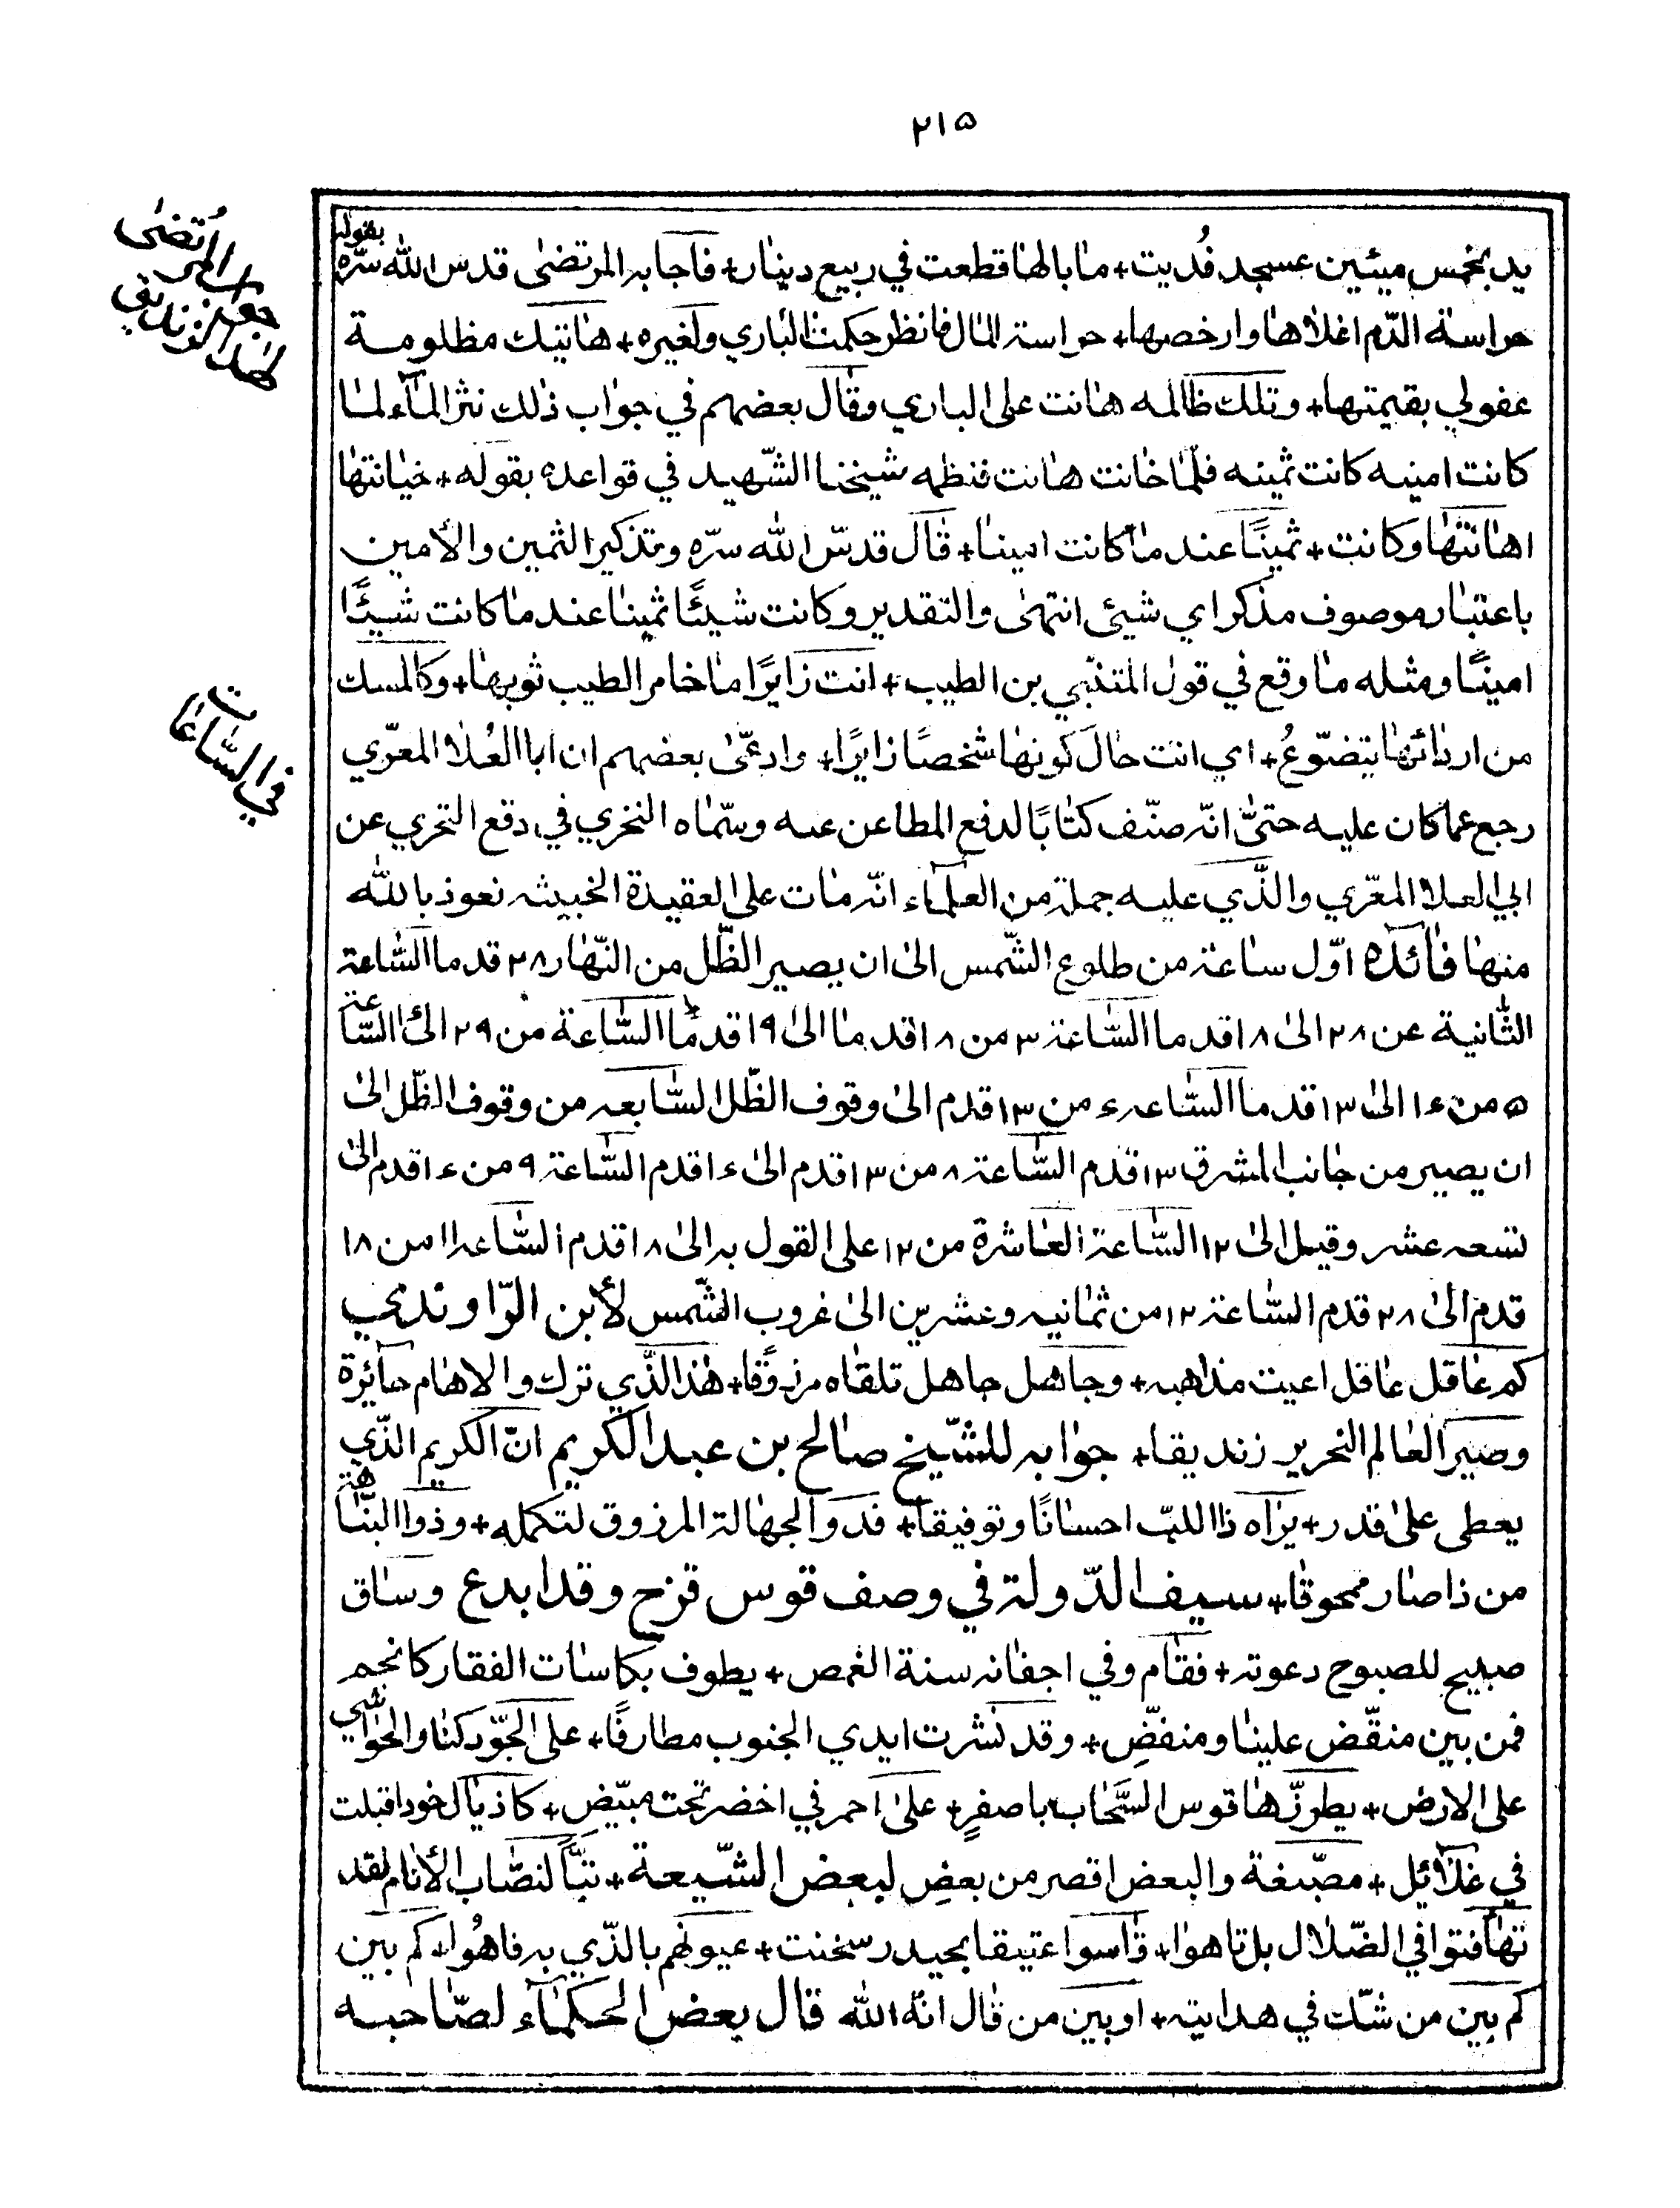 ٢١٥
يد بخمس ميئين عسجد فُديت + ما بالها قطعت في ربيع دينار + فاجابه المرتضى قدس الله سرّه بقوله
حراسة الدّم اغلاها وارخصها + حراسة المال فانظر حكمة الباري ولغيره + هاتيك مظلومة
عفولي بقيمتها + وتلك ظالمه هانت على الباري وقال بعضهم في جواب ذلك نثرا لمآء لما
كانت امينه كانت ثمينه فلمّا خانت هانت فنظمه شيخنا الشّهيد في قواعده بقوله + خيانتها
اهانتها وكانت + ثمينًا عند ما كانت امينا + قال قدسّ الله سرّه وتذكير الثمين والأمين
باعتبار موصوف مذكر اي شيئ انتهى والتقدير وكانت شيئًا ثمينا عند ما كانت شيئًا
امينًا ومثله ما وقع في قول المتنبّي بن الطيب + انت زايرًا ما خامر الطيب ثوبها + وكالمسك
من اردائها يتضوّعُ + اي انت حال كونها شخصًا زايرًا + وادعّى بعضهم ان ابا العُلا المعرّي
رجع عما كان عليه حتىّ انّه صنّف كتابًا لدفع المطاعن عنه وسّماه التحري في دفع التحري عن
ابي العلا المعّري والذّي عليه جملة من العلمآء انّه مات على العقيدة الخبيثه نعوذ بالله
منها فائده اوّل ساعة من طلوع الشّمس الى ان يصير الظّل من النّهار ٢٨ قدما السّاعة
الثّانية عن ٢٨ الى ١٨ قدما السّاعة ٣ من ١٨ قدما الى ١٩ قدما السّاعة من ٢٩ الى ء السّاعة
٥ من ١٠ الى ١٣ قدما السّاعه ء من ١٣ قدم الى وقوف الظّل السّابعه من وقوف الظّل الى
ان يصير من جانب المشرق ١٣ قدم السّاعة ٨ من ١٣ قدم الى ١ء قدم السّاعة ٩ من ١ء قدم الى
تسعه عشر وقيل الى ١٢ السّاعة العاشرة من ١٢ على القول به الى ١٨ قدم السّاعه ١١ من ١٨
قدم الى ٢٨ قدم السّاعة ١٢ من ثمانيه وعشرين الى غروب الشّمس لأبن الرّاوندي
كم عاقل عاقل اعيت مذاهبه + وجاهل جاهل تلقاه مرزوقا + هذا الذّي ترك والاهام حآئرة
وصير العالم النحرير زنديقا + جوابه للشّيخ صالح بن عبد الكريم انّ الكريم الذّي
يعطى على قدر + يراه ذا اللبّ احسانًا وتوفيقا + فذو الجهالة المرزوق لتكمله + وذوا النّباهة
من ذا صار ممحوقا + سيف الدّولة في وصف قوس قزح وقد ابدع وساق
صبيح للصبوح دعوته + فقام وفي اجفانه سنة الغمص + يطوف بكاسات الفقار كانجم
فمن بين منقّض علينا ومنفضّ + وقد نشرت ايدي الجنوب مطارفًا + على الجوّ دكنا والحواشي
على الارض + يطرزّها قوس السّحاب باصفرٍ + على احمر في اخضر تحت مبيّض + كاذيال خود اقبلت
في غلآئل + مصبّغة والبعض اقصر من بعضِ لبعض الشّيعة + تبًّا لنصّاب الأنام لقد
تهافتوا في الضّلال بل تاهوا + قاسوا عتيقا بحيدر سخنت + عيونهم بالذّي به فاهُوا + كم بين
كم بين من شكّ في هدايته + او بين من قال انه الله قال بعض الحكمآء لصّاحبه
جواب المرتضى
لهذا الزنديق
في السّاعات